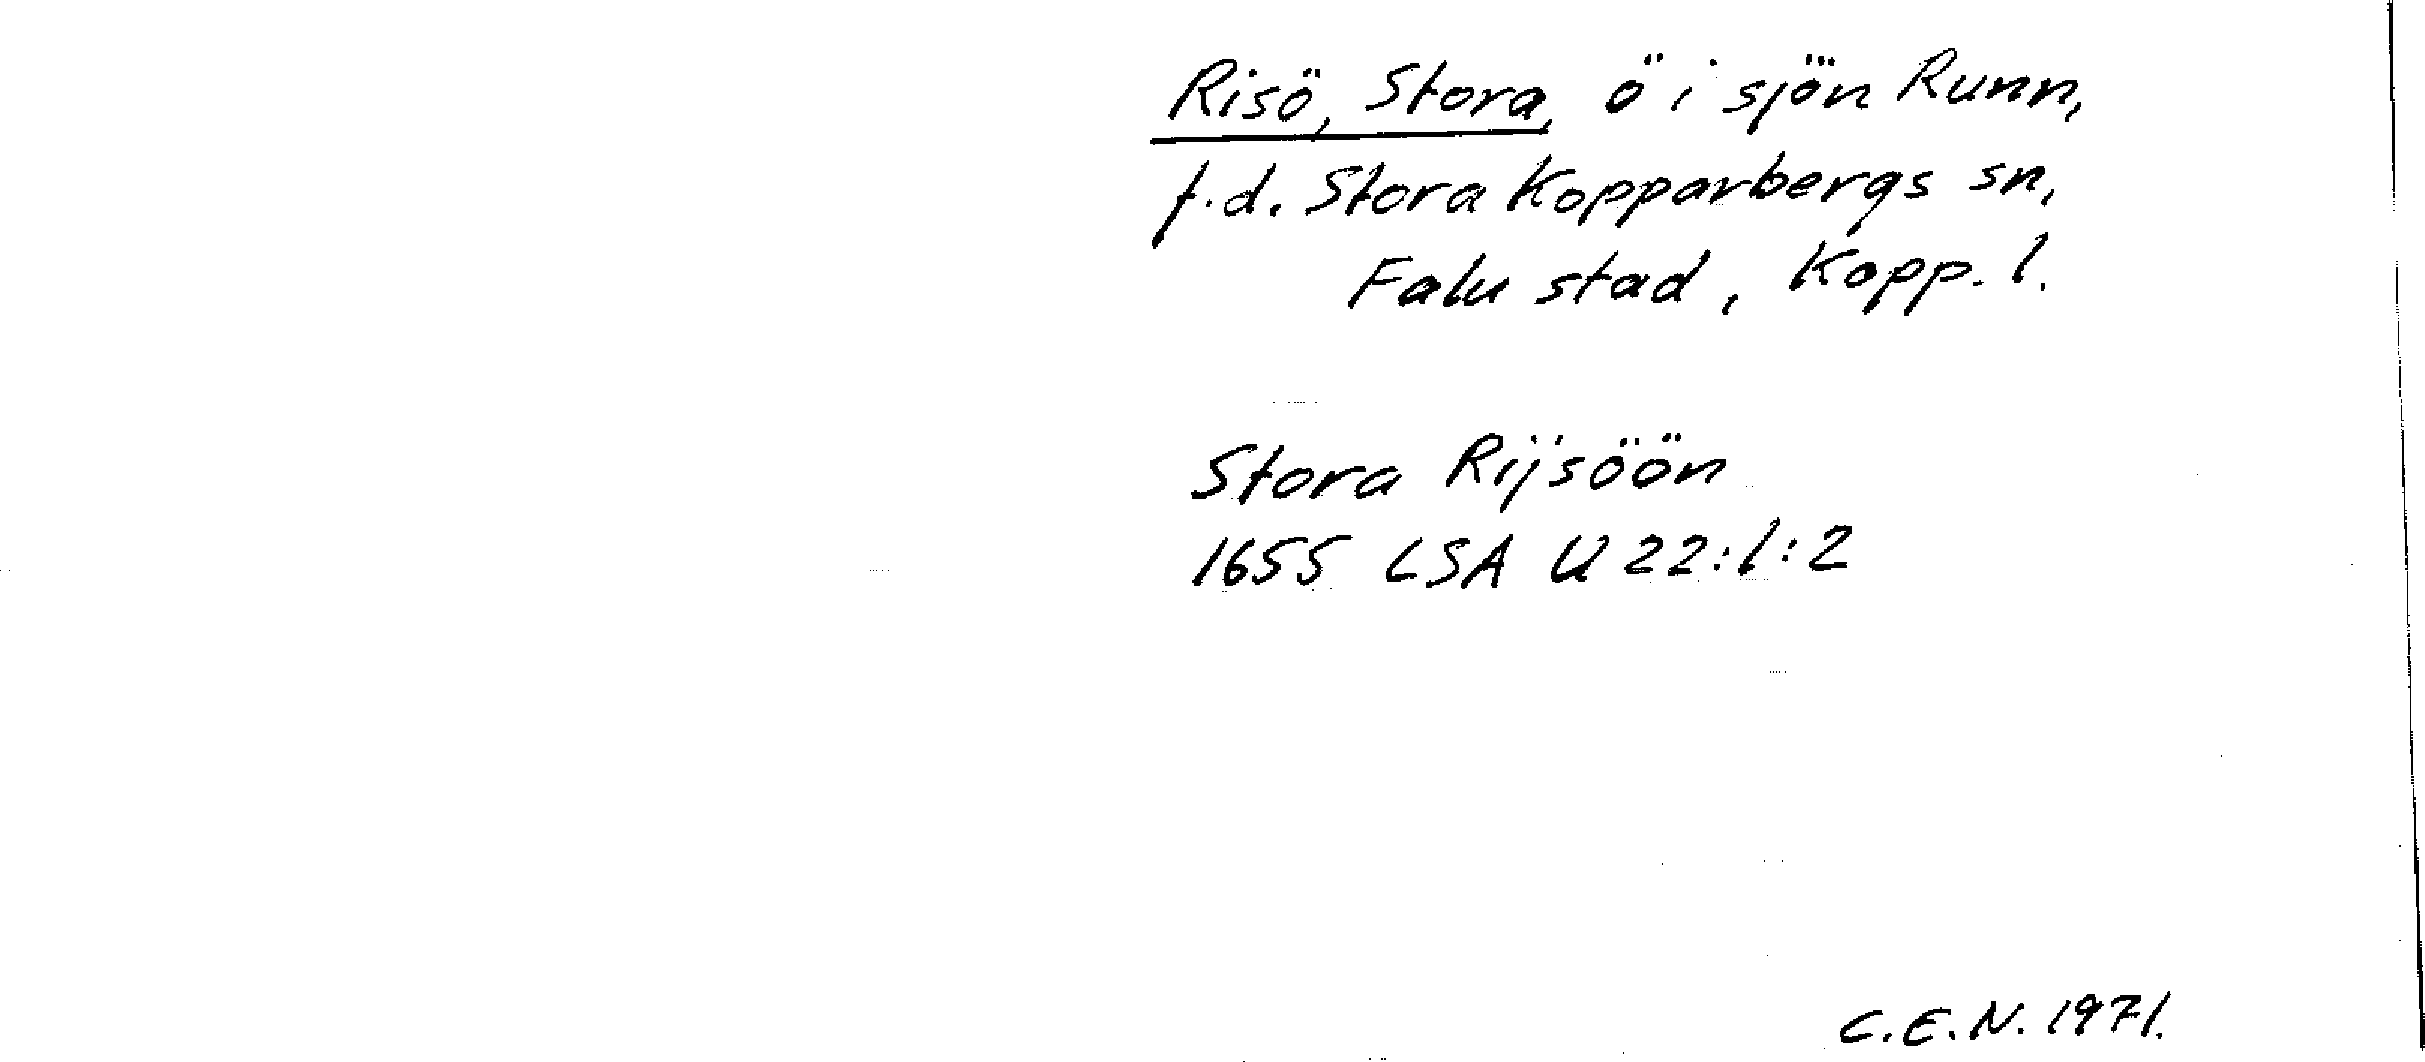 Risö, Stora, ö i sjön Runn,
f.d. Stora Kopparbergs sn,
Falu stad, Kopp. l.
Stora Rijsöön
1655 LSA U 22:1:2
C.E.N. 1971.